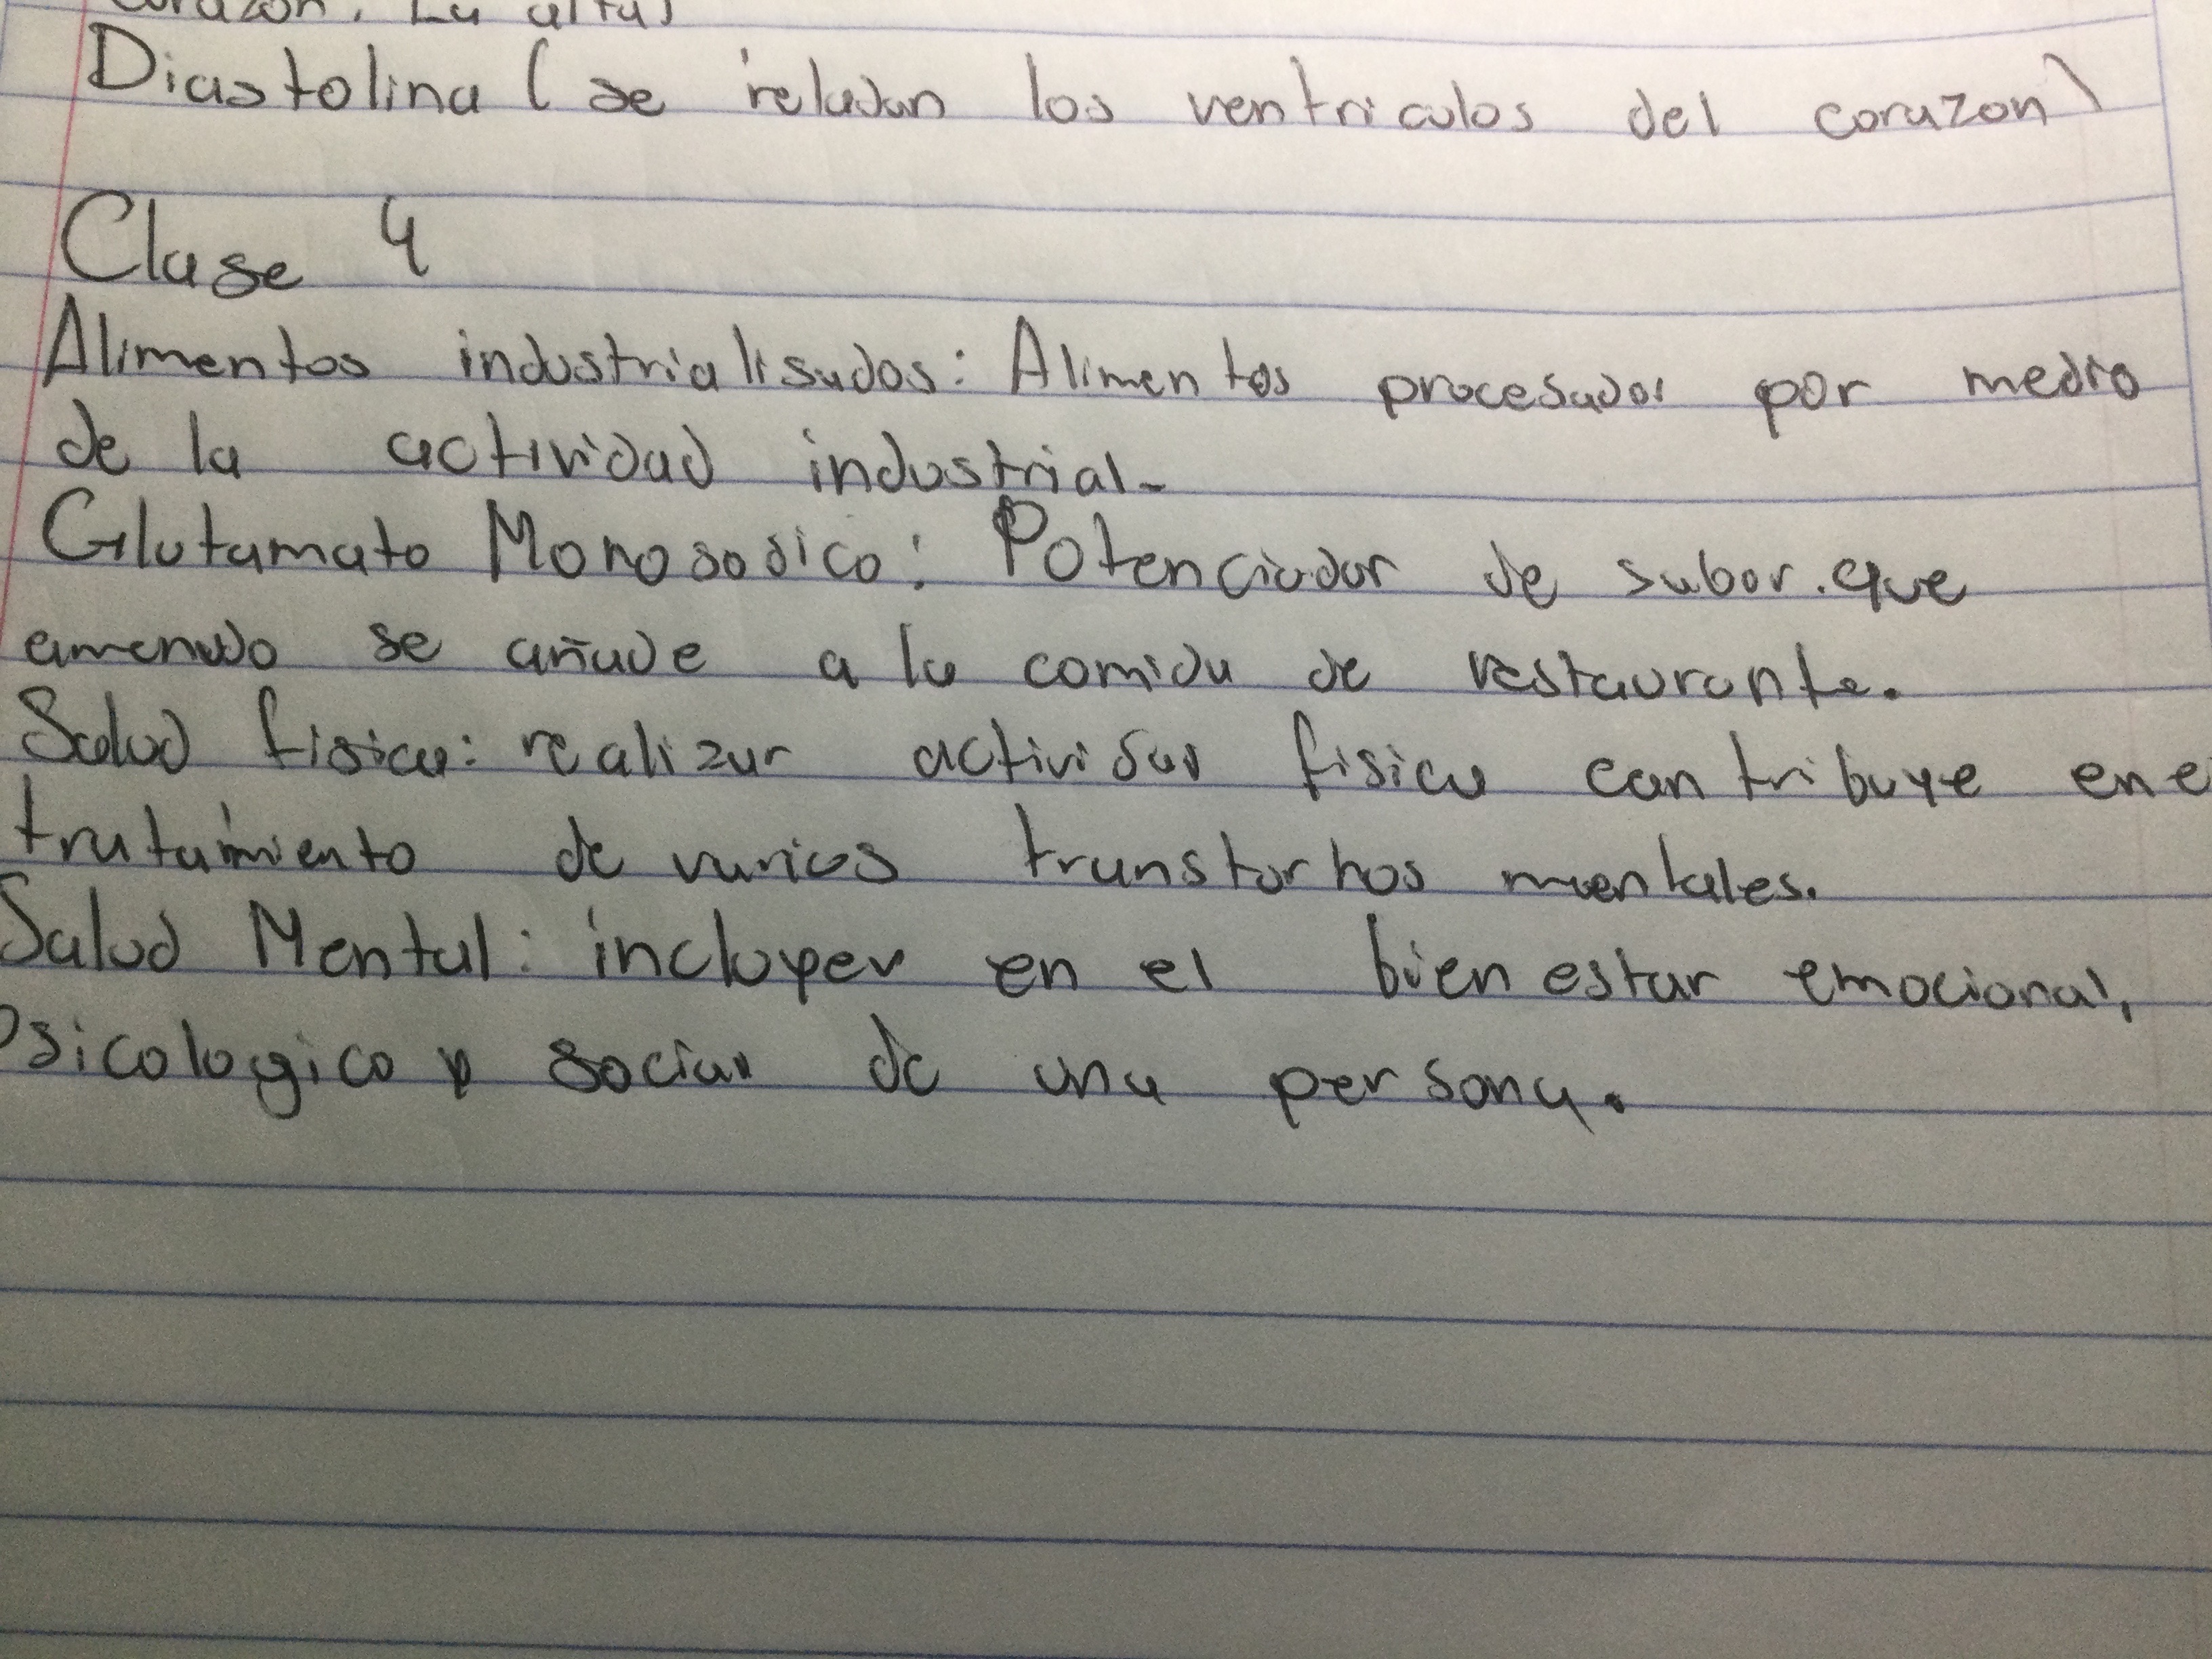 corazon. La alta)
Diastolina (se relajan los ventriculos del corazon)
Clase 4
Alimentos industrialisados: Alimentos procesados por medio
de la actividad industrial-
Glutamato Monosodico: Potenciador de sabor. que
amenudo se añade a la comida de restaurante.
Salud fisica: realizar actividad fisica contribuye en e
tratamiento de varios transtornos mentales.
Salud Mental: incluyen en el bienestar emocional,
Psicologico y social de una persona.